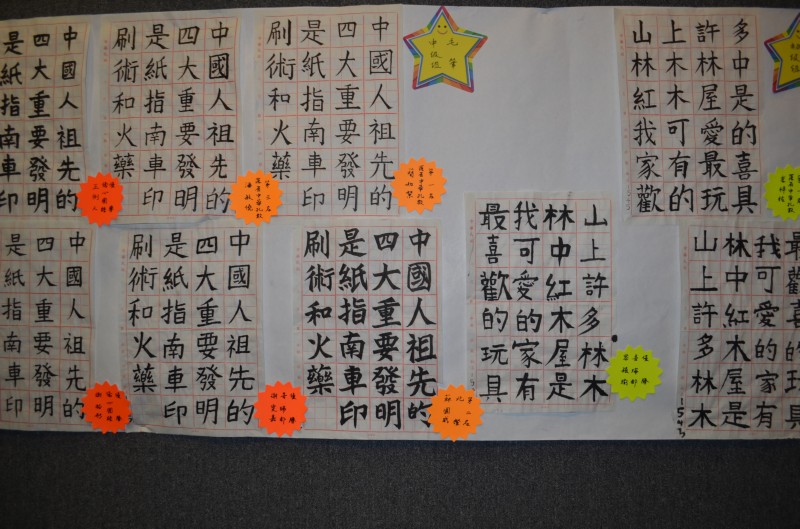 中國人祖先的
四大重要發明
是紙指南車印
中國人祖先的
四大重要發明
是紙指南車印
刷術和火藥
中國人祖先的
四大重要發明
是紙指南車印
刷術和火藥
第一名
毛筆
中級組
山上許多
林木林中
紅木屋是
我可愛的
家有最喜
歡的玩具
中國人祖先的
四大重要發明
是紙指南車印
中國人祖先的
四大重要發明
是紙指南車印
刷術和火藥
中國人祖先的
四大重要發明
是紙指南車印
刷術和火藥
第二名
山上許多林木
林中紅木屋是
我可愛的家有
最喜歡的玩具
山上許多林木
林中紅木屋是
我可愛的家有